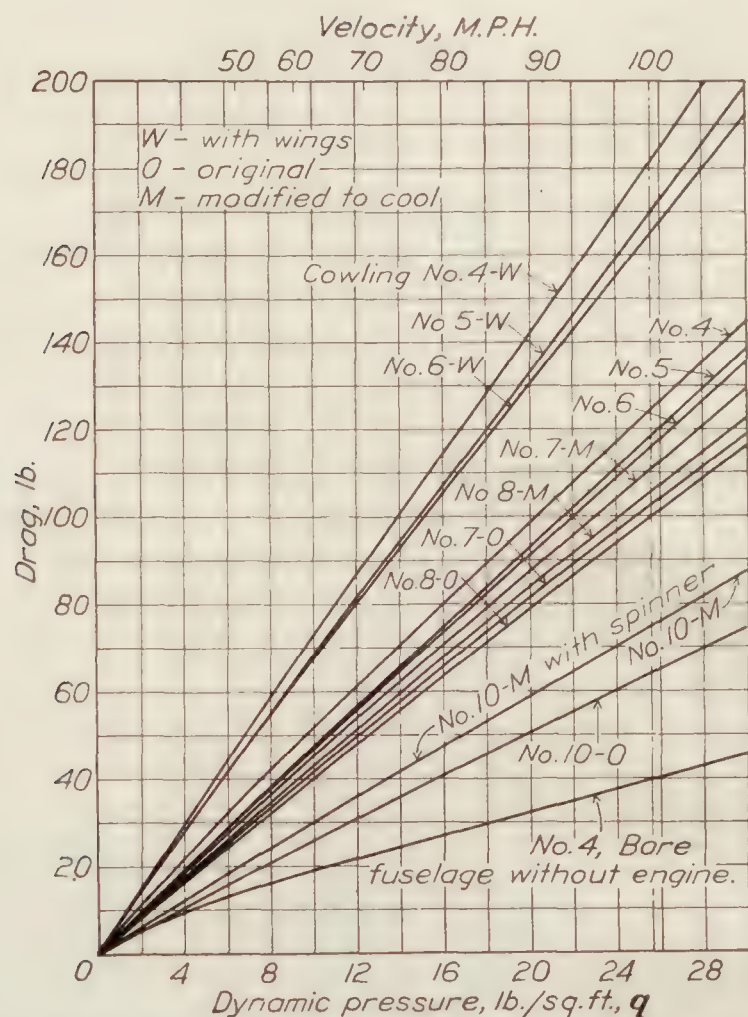 Velocity, M.P.H.
50 60 70 80 90 100
200
180
160
140
120
100
80
60
40
20
0
Drag, lb.
W - with wings
O - original
M - modified to cool
Cowling No. 4-W
No 5-W
No. 6-W
No. 4
No. 5
No. 6
No. 7-M
No 8-M
No. 7-O
No. 8-O
No. 10-M with spinner
No. 10-M
No. 10-O
No. 4, Bare
fuselage without engine.
0 4 8 12 16 20 24 28
Dynamic pressure, lb./sq.ft., q